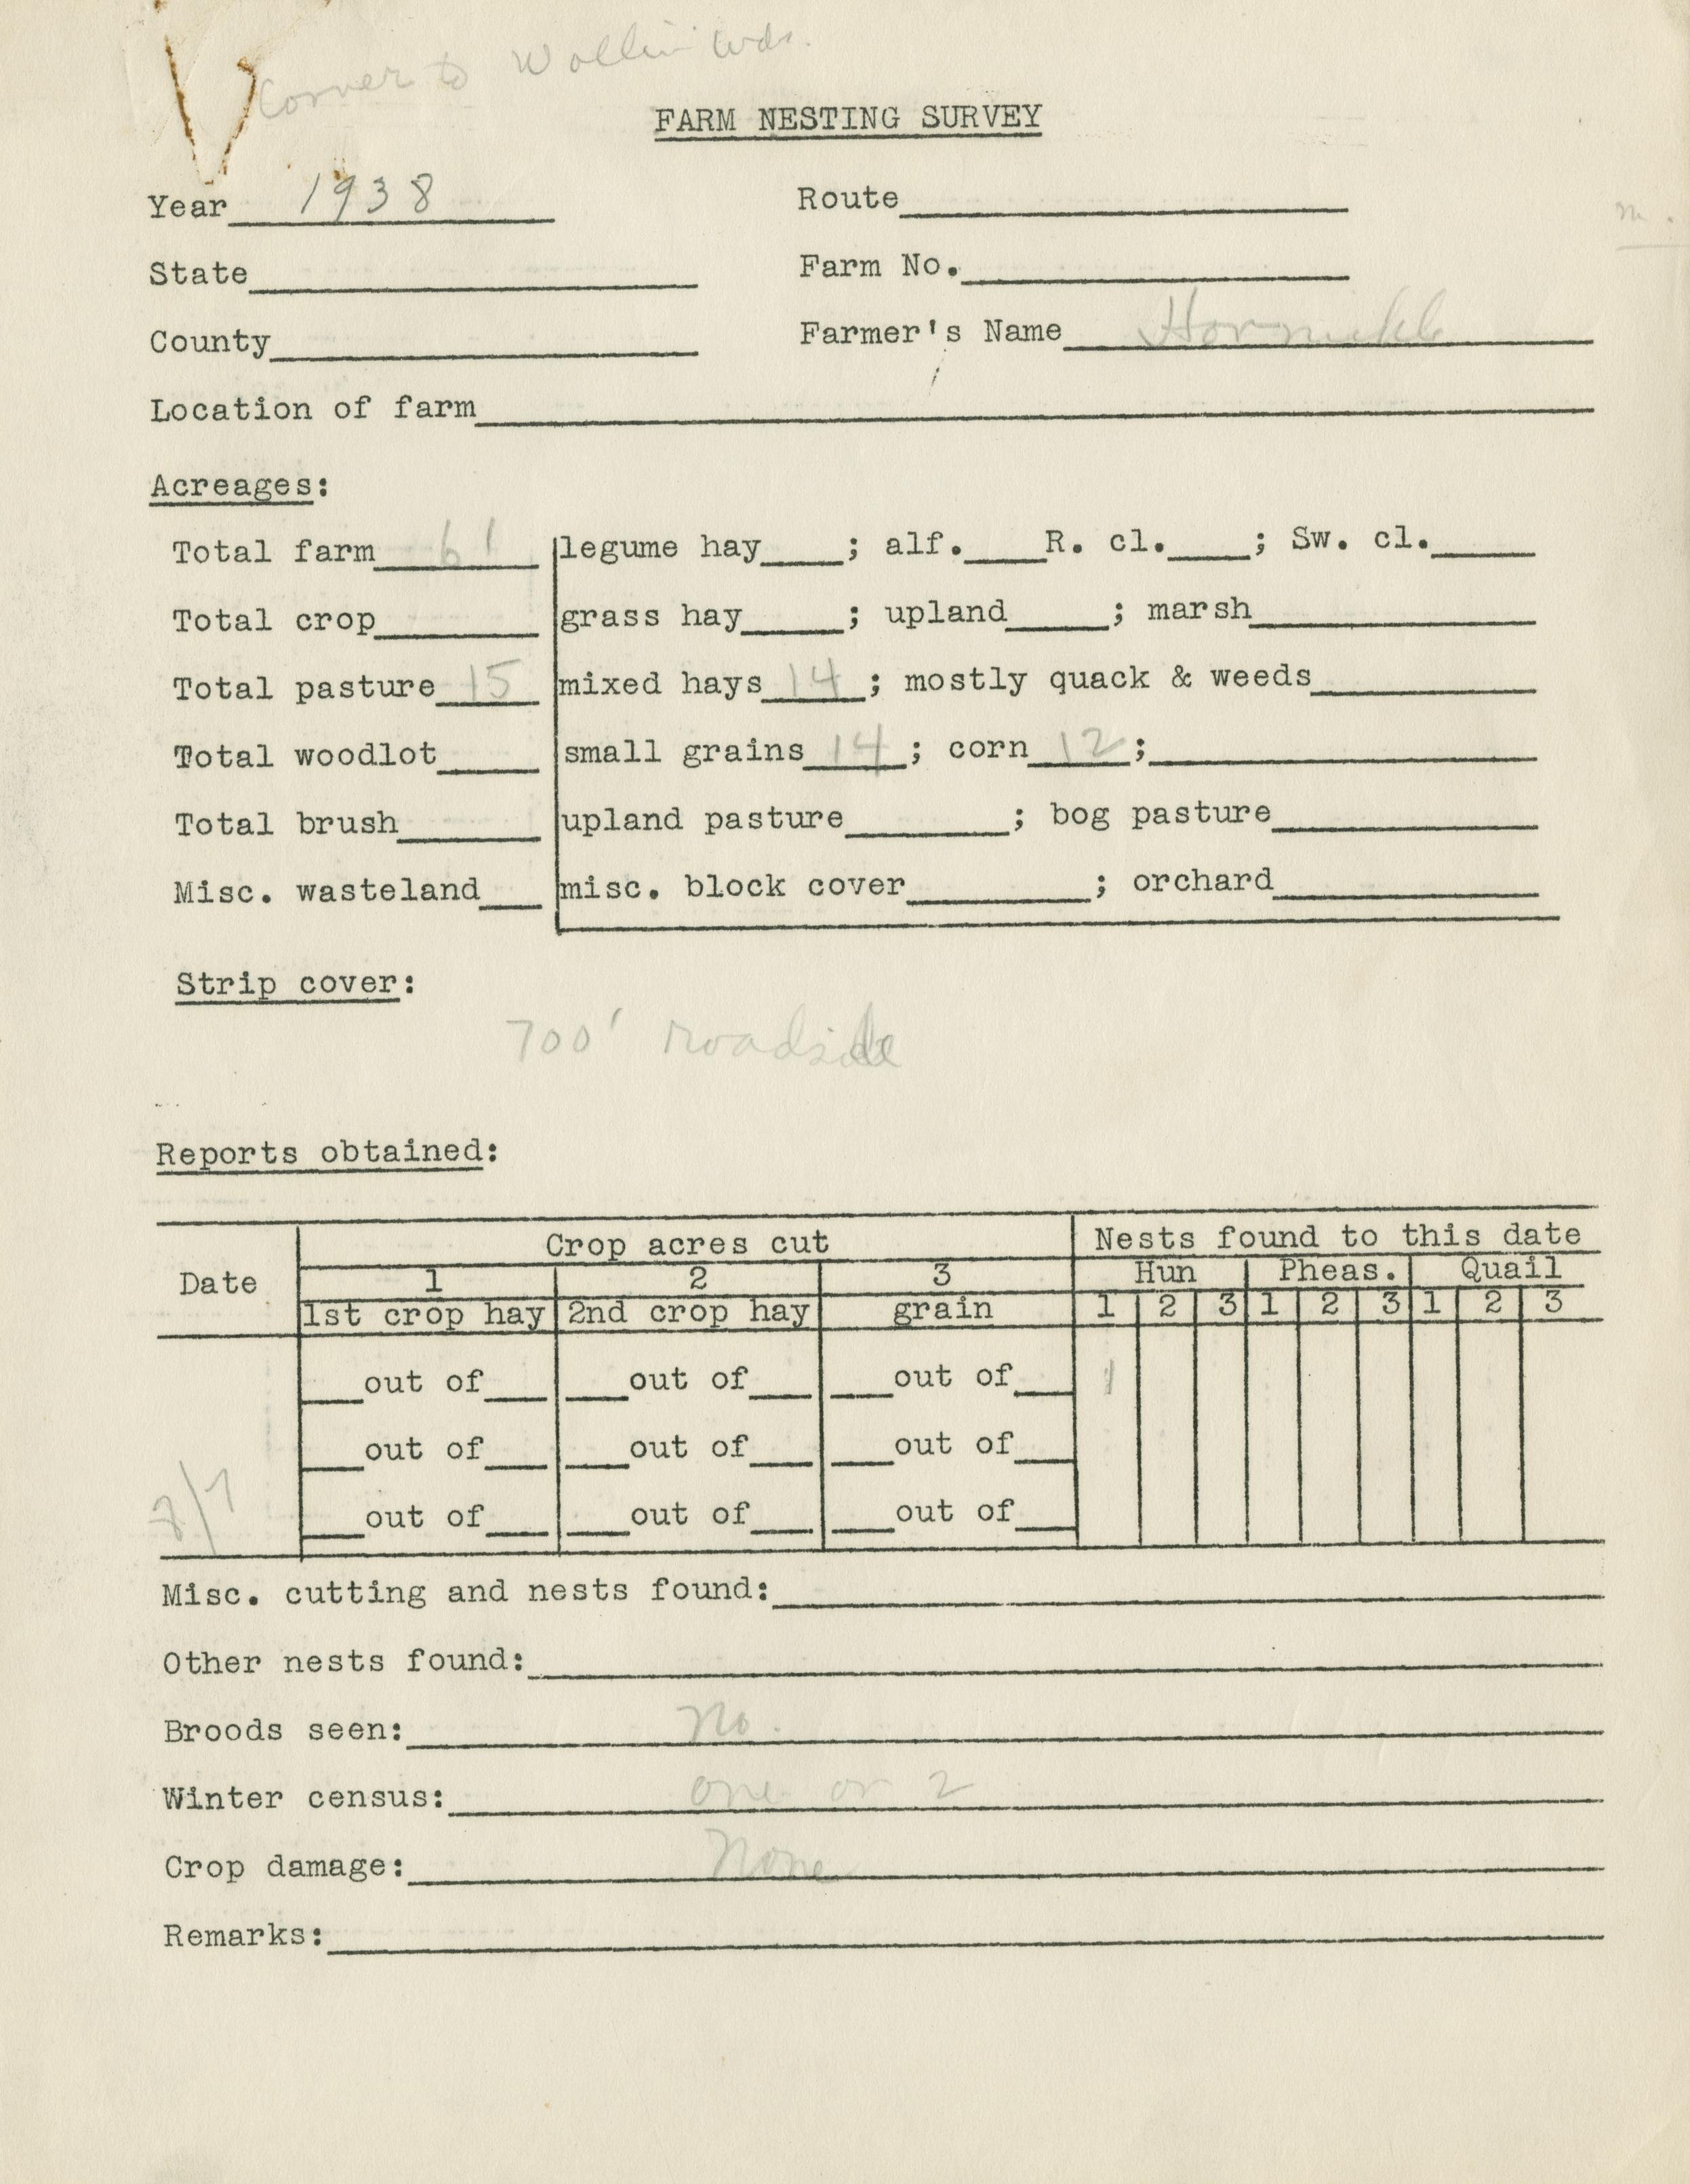 Corner to
FARM NESTING SURVEY
Year 1938 Route
State Farm No.
County Farmer's Name
Location of farm
Acreages:
Total farm 61 legume hay ; alf. R. cl. ; Sw. cl.
Total crop grass hay ; upland ; marsh
Total pasture 15 mixed hays 14 ; mostly quack & weeds
Total woodlot small grains 14 ; corn 12 ;
Total brush upland pasture ; bog pasture
Misc. wasteland misc. block cover ; orchard
Strip cover:
700' roadside
Reports obtained:
Crop acres cut Nests found to this date
Date 1 2 3 Hun Pheas. Quail
1st crop hay 2nd crop hay grain 1 2 3 1 2 3 1 2 3
out of out of out of 1
out of out of out of
8/7 out of out of out of
Misc. cutting and nests found:
Other nests found:
Broods seen: No.
Winter census: one or 2
Crop damage: None
Remarks: